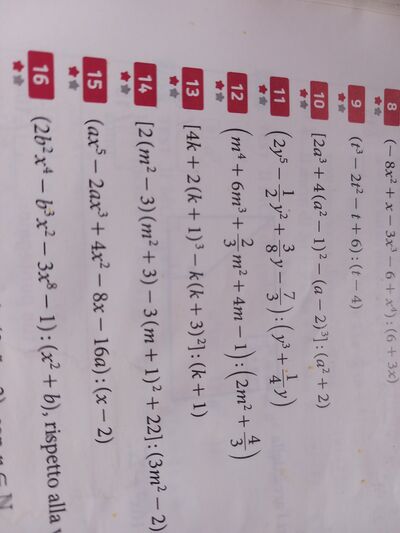 8 (−8x² + x − 3x³ − 6 + x⁴) : (6 + 3x)
9 (t³ − 2t² − t + 6) : (t − 4)
10 [2a³ + 4(a² − 1)² − (a − 2)³] : (a² + 2)
11 (2y⁵ − 1/2 y² + 3/8 y − 7/3) : (y³ + 1/4 y)
12 (m⁴ + 6m³ + 2/3 m² + 4m − 1) : (2m² + 4/3)
13 [4k + 2(k + 1)³ − k(k + 3)²] : (k + 1)
14 [2(m² − 3)(m² + 3) − 3(m + 1)² + 22] : (3m² − 2)
15 (ax⁵ − 2ax³ + 4x² − 8x − 16a) : (x − 2)
16 (2b²x⁴ − b³x² − 3x⁸ − 1) : (x² + b), rispetto alla